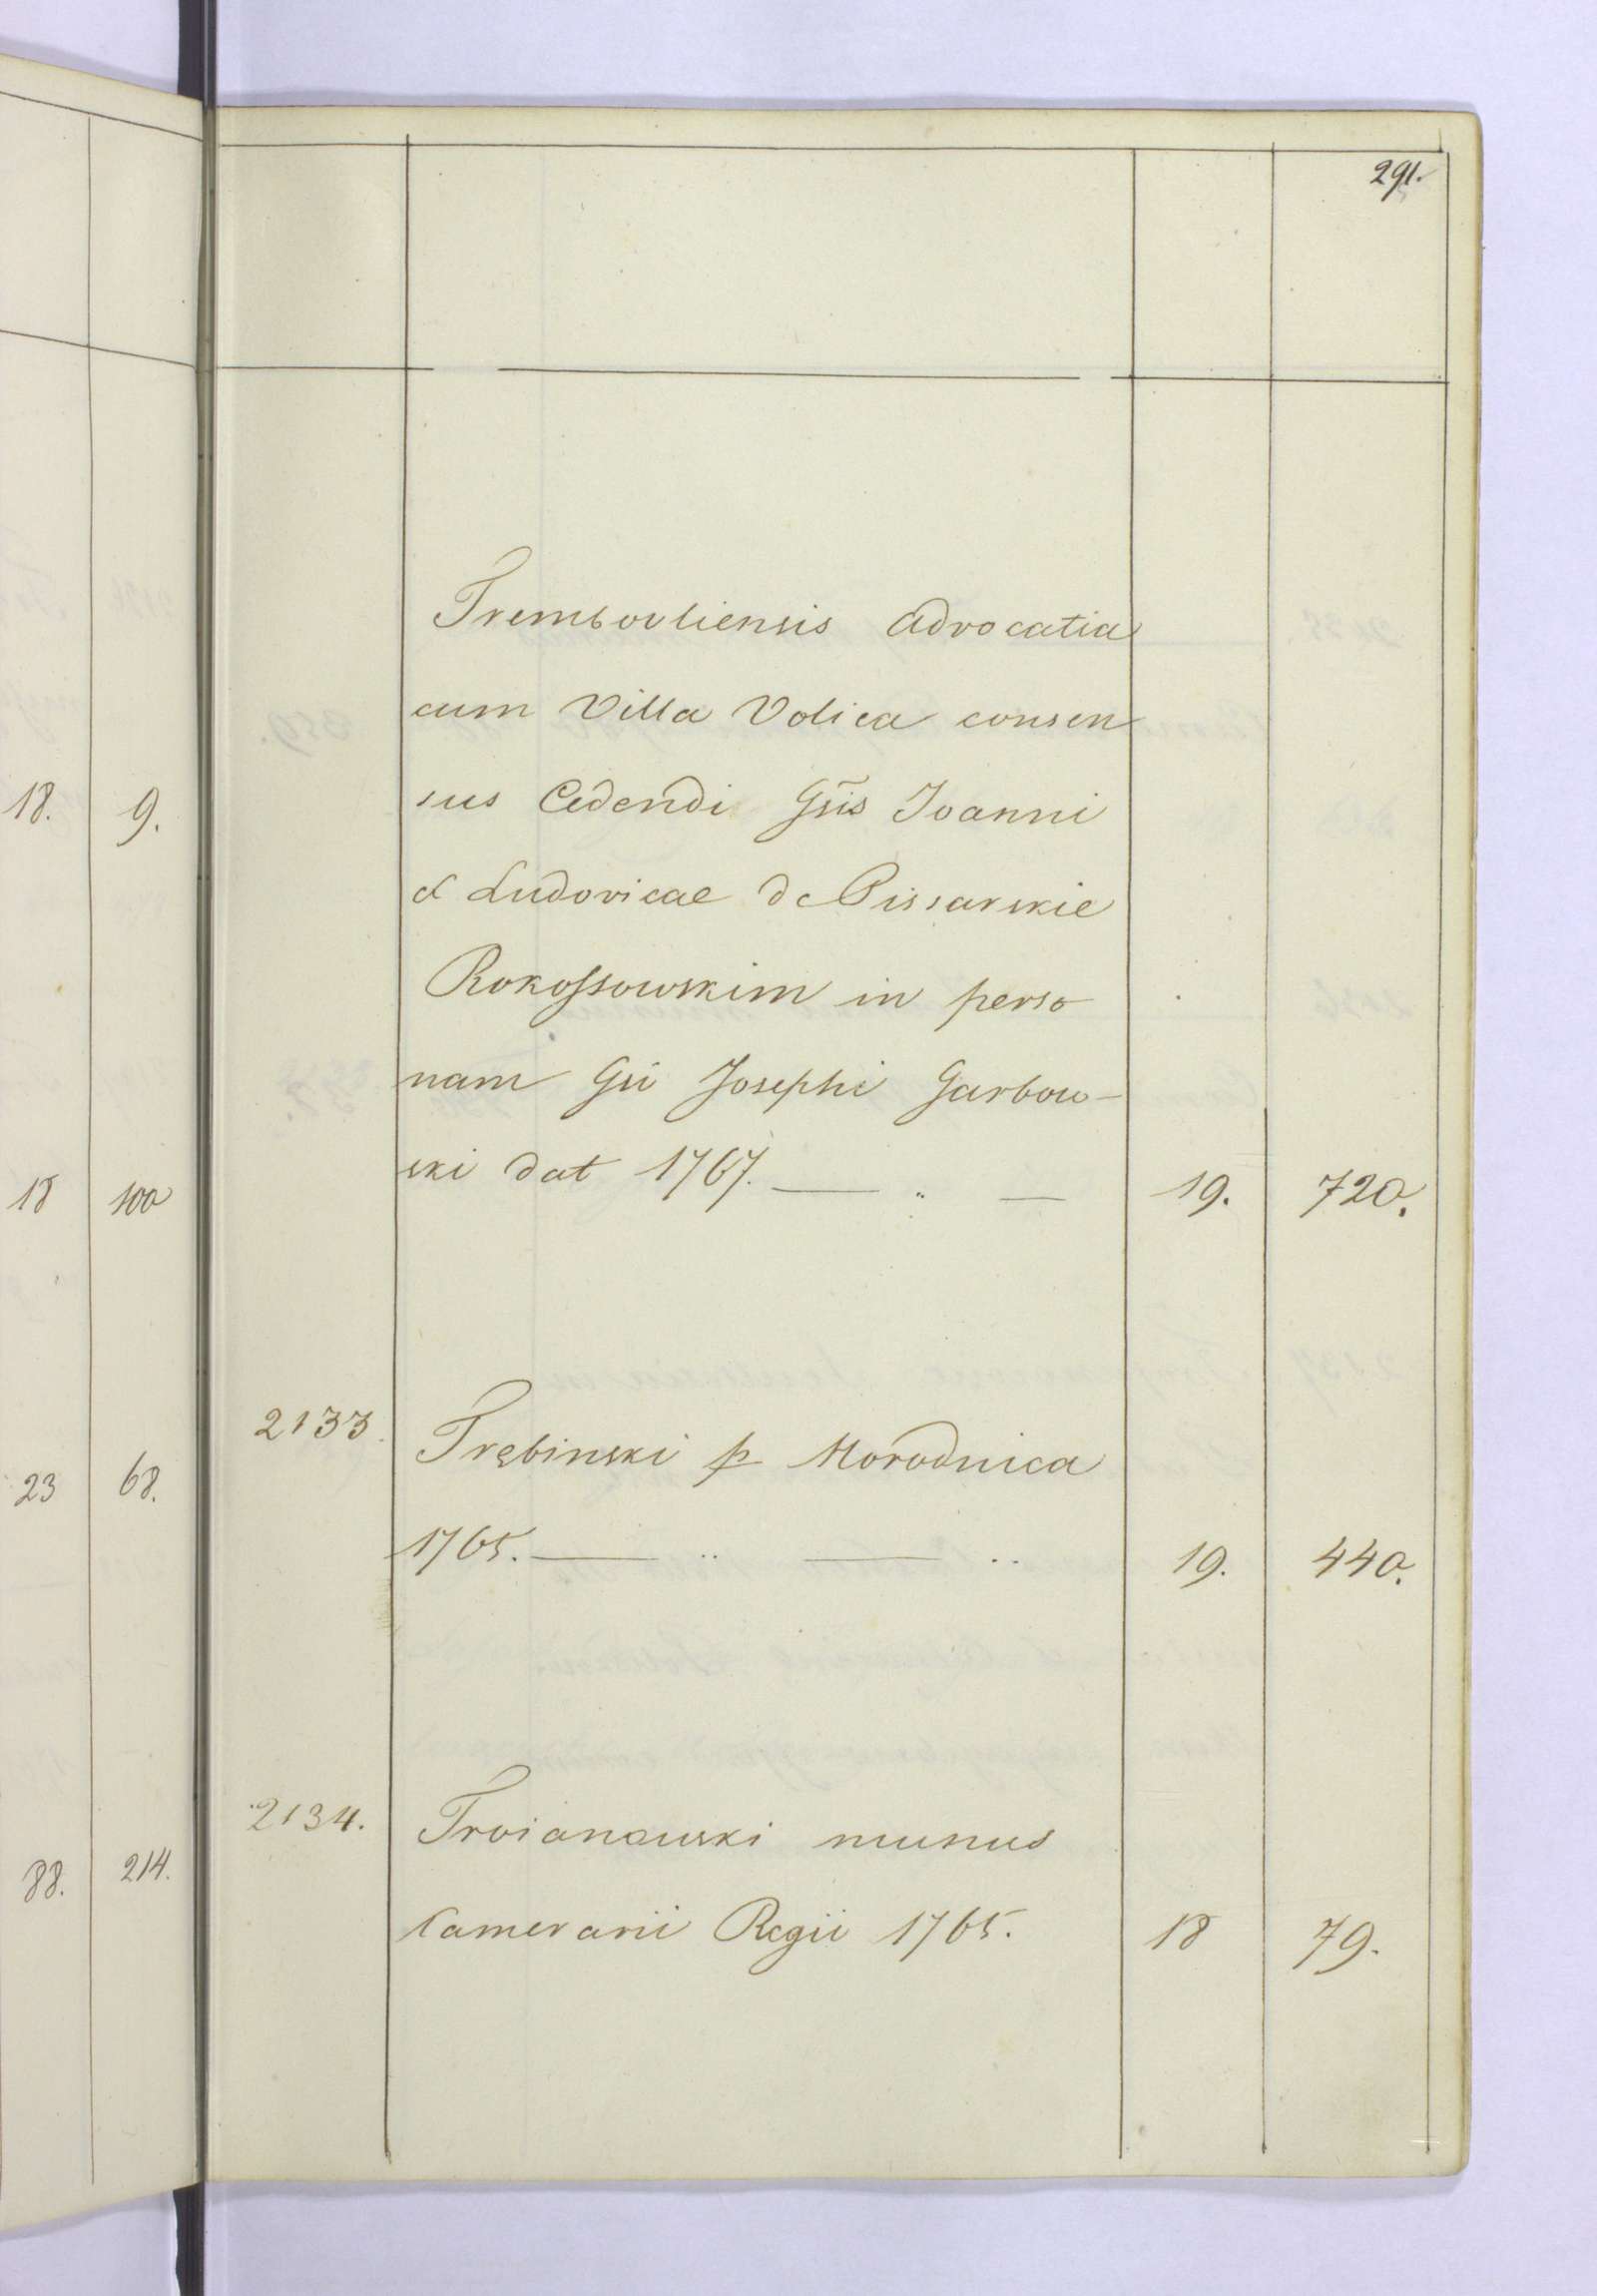 291.
Trembovliensis Advocatia
cum Villa Volica consen
sus Cedendi Gsis Joanni
et Ludovicae de Pissarskie
Rokossowskim in perso
nam Gsi Josephi Garbow-
ski dat 1767. — " — 19. 720.
2133. Trębinski p Horodnica
1765. — " — " 19. 440.
2134. Troianowski munus
Camerarii Regii 1765. 18 79.
18. 9.
18 100
23 68.
88. 214.